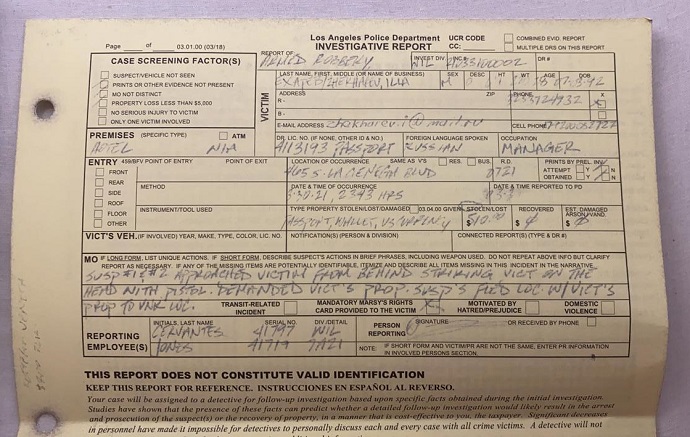 Los Angeles Police Department
INVESTIGATIVE REPORT
UCR CODE
CC:
COMBINED EVID. REPORT
MULTIPLE DRS ON THIS REPORT
Page of 03.01.00 (03/18)
REPORT OF ROBBERY
INVEST DIV. WIL
INC#
DR #
CASE SCREENING FACTOR(S)
SUSPECT/VEHICLE NOT SEEN
PRINTS OR OTHER EVIDENCE NOT PRESENT
MO NOT DISTINCT
PROPERTY LOSS LESS THAN $5,000
NO SERIOUS INJURY TO VICTIM
ONLY ONE VICTIM INVOLVED
VICTIM
LAST NAME, FIRST, MIDDLE (OR NAME OF BUSINESS)
SEX DESC HT WT AGE DOB
ADDRESS ZIP PHONE
R -
B -
E-MAIL ADDRESS CELL PHONE
PREMISES (SPECIFIC TYPE) ATM
DR. LIC. NO. (IF NONE, OTHER ID & NO.)
PASSPORT
FOREIGN LANGUAGE SPOKEN
RUSSIAN
OCCUPATION
MANAGER
ENTRY 459/BFV POINT OF ENTRY POINT OF EXIT
FRONT
REAR
SIDE
ROOF
FLOOR
OTHER
METHOD
INSTRUMENT/TOOL USED
LOCATION OF OCCURRENCE SAME AS V'S RES. BUS.
465 S. LA CIENEGA BLVD
R.D.
0721
PRINTS BY PREL. INV.
ATTEMPT Y N
OBTAINED Y N
DATE & TIME OF OCCURRENCE
2343 HRS
DATE & TIME REPORTED TO PD
TYPE PROPERTY STOLEN/LOST/DAMAGED 03.04.00 GIVEN
PASSPORT, WALLET, US CURRENCY
STOLEN/LOST
RECOVERED
EST. DAMAGED ARSON/VAND.
VICT'S VEH. (IF INVOLVED) YEAR, MAKE, TYPE, COLOR, LIC. NO.
NOTIFICATION(S) (PERSON & DIVISION)
CONNECTED REPORT(S) (TYPE & DR #)
MO IF LONG FORM, LIST UNIQUE ACTIONS. IF SHORT FORM, DESCRIBE SUSPECT'S ACTIONS IN BRIEF PHRASES, INCLUDING WEAPON USED. DO NOT REPEAT ABOVE INFO BUT CLARIFY
REPORT AS NECESSARY. IF ANY OF THE MISSING ITEMS ARE POTENTIALLY IDENTIFIABLE, ITEMIZE AND DESCRIBE ALL ITEMS MISSING IN THIS INCIDENT IN THE NARRATIVE.
APPROACHED VICTIM FROM BEHIND STRIKING VICT ON THE
HEAD WITH PISTOL. DEMANDED VICT'S PROP. SUSP'S FLED LOC W/VICT'S
PROP TO UNK LOC.
TRANSIT-RELATED INCIDENT
MANDATORY MARSY'S RIGHTS CARD PROVIDED TO THE VICTIM
MOTIVATED BY HATRED/PREJUDICE
DOMESTIC VIOLENCE
REPORTING EMPLOYEE(S)
INITIALS, LAST NAME SERIAL NO. DIV./DETAIL
CERVANTES 41797 WIL
JONES 41719 7A21
PERSON REPORTING
SIGNATURE OR RECEIVED BY PHONE
NOTE: IF SHORT FORM AND VICTIM/PR ARE NOT THE SAME, ENTER PR INFORMATION IN INVOLVED PERSONS SECTION.
THIS REPORT DOES NOT CONSTITUTE VALID IDENTIFICATION
KEEP THIS REPORT FOR REFERENCE. INSTRUCCIONES EN ESPAÑOL AL REVERSO.
Your case will be assigned to a detective for follow-up investigation based upon specific facts obtained during the initial investigation.
Studies have shown that the presence of these facts can predict whether a detailed follow-up investigation would likely result in the arrest
and prosecution of the suspect(s) or the recovery of property, in a manner that is cost-effective to you, the taxpayer. Significant decreases
in personnel have made it impossible for detectives to personally discuss each and every case with all crime victims. A detective will not